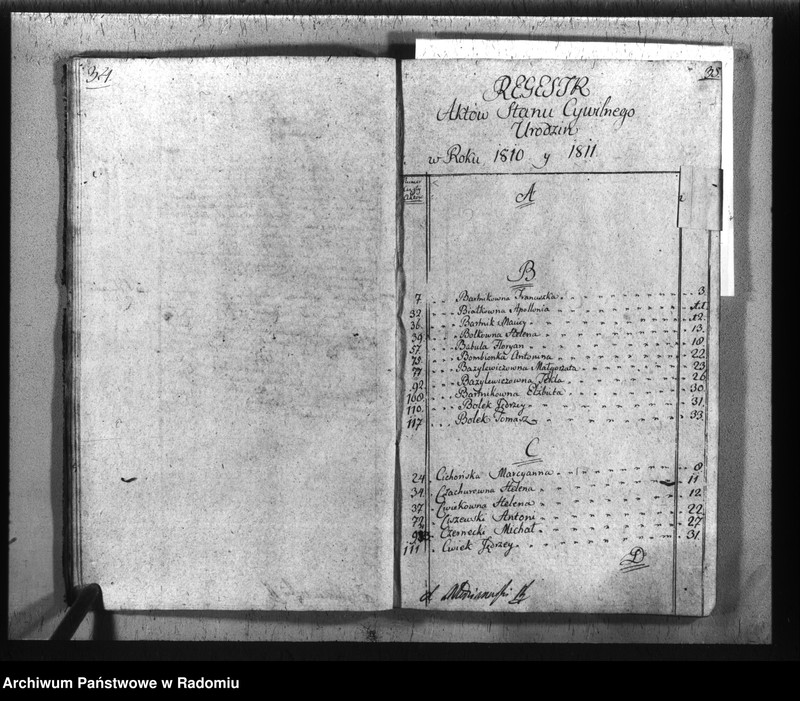 34
35
REGESTR
Aktów Stanu Cywilnego
Urodzin
w Roku 1810 y 1811
A
B
7 Bartnikowna Franciszka 3
32 Białkowna Apollonia 11
36 Bartnik Maciey 12
39 Bolkowna Helena 13
57 Babula Floryan 18
75 Bombionka Antonina 22
77 Bazylewiczowna Małgorzata 23
92 Bazylewiczowna Tekla 26
100 Bartnikowna Elżbieta 30
110 Bolek Jędrzey 31
117 Bolek Tomasz 33
C
24 Cichońska Marcyanna 8
34 Czachurowna Helena 11
37 Cwiekowna Helena 12
72 Ciszewski Antoni 22
Czernecki Michał 27
111 Cwiek Jędrzey 31
D
Archiwum Państwowe w Radomiu